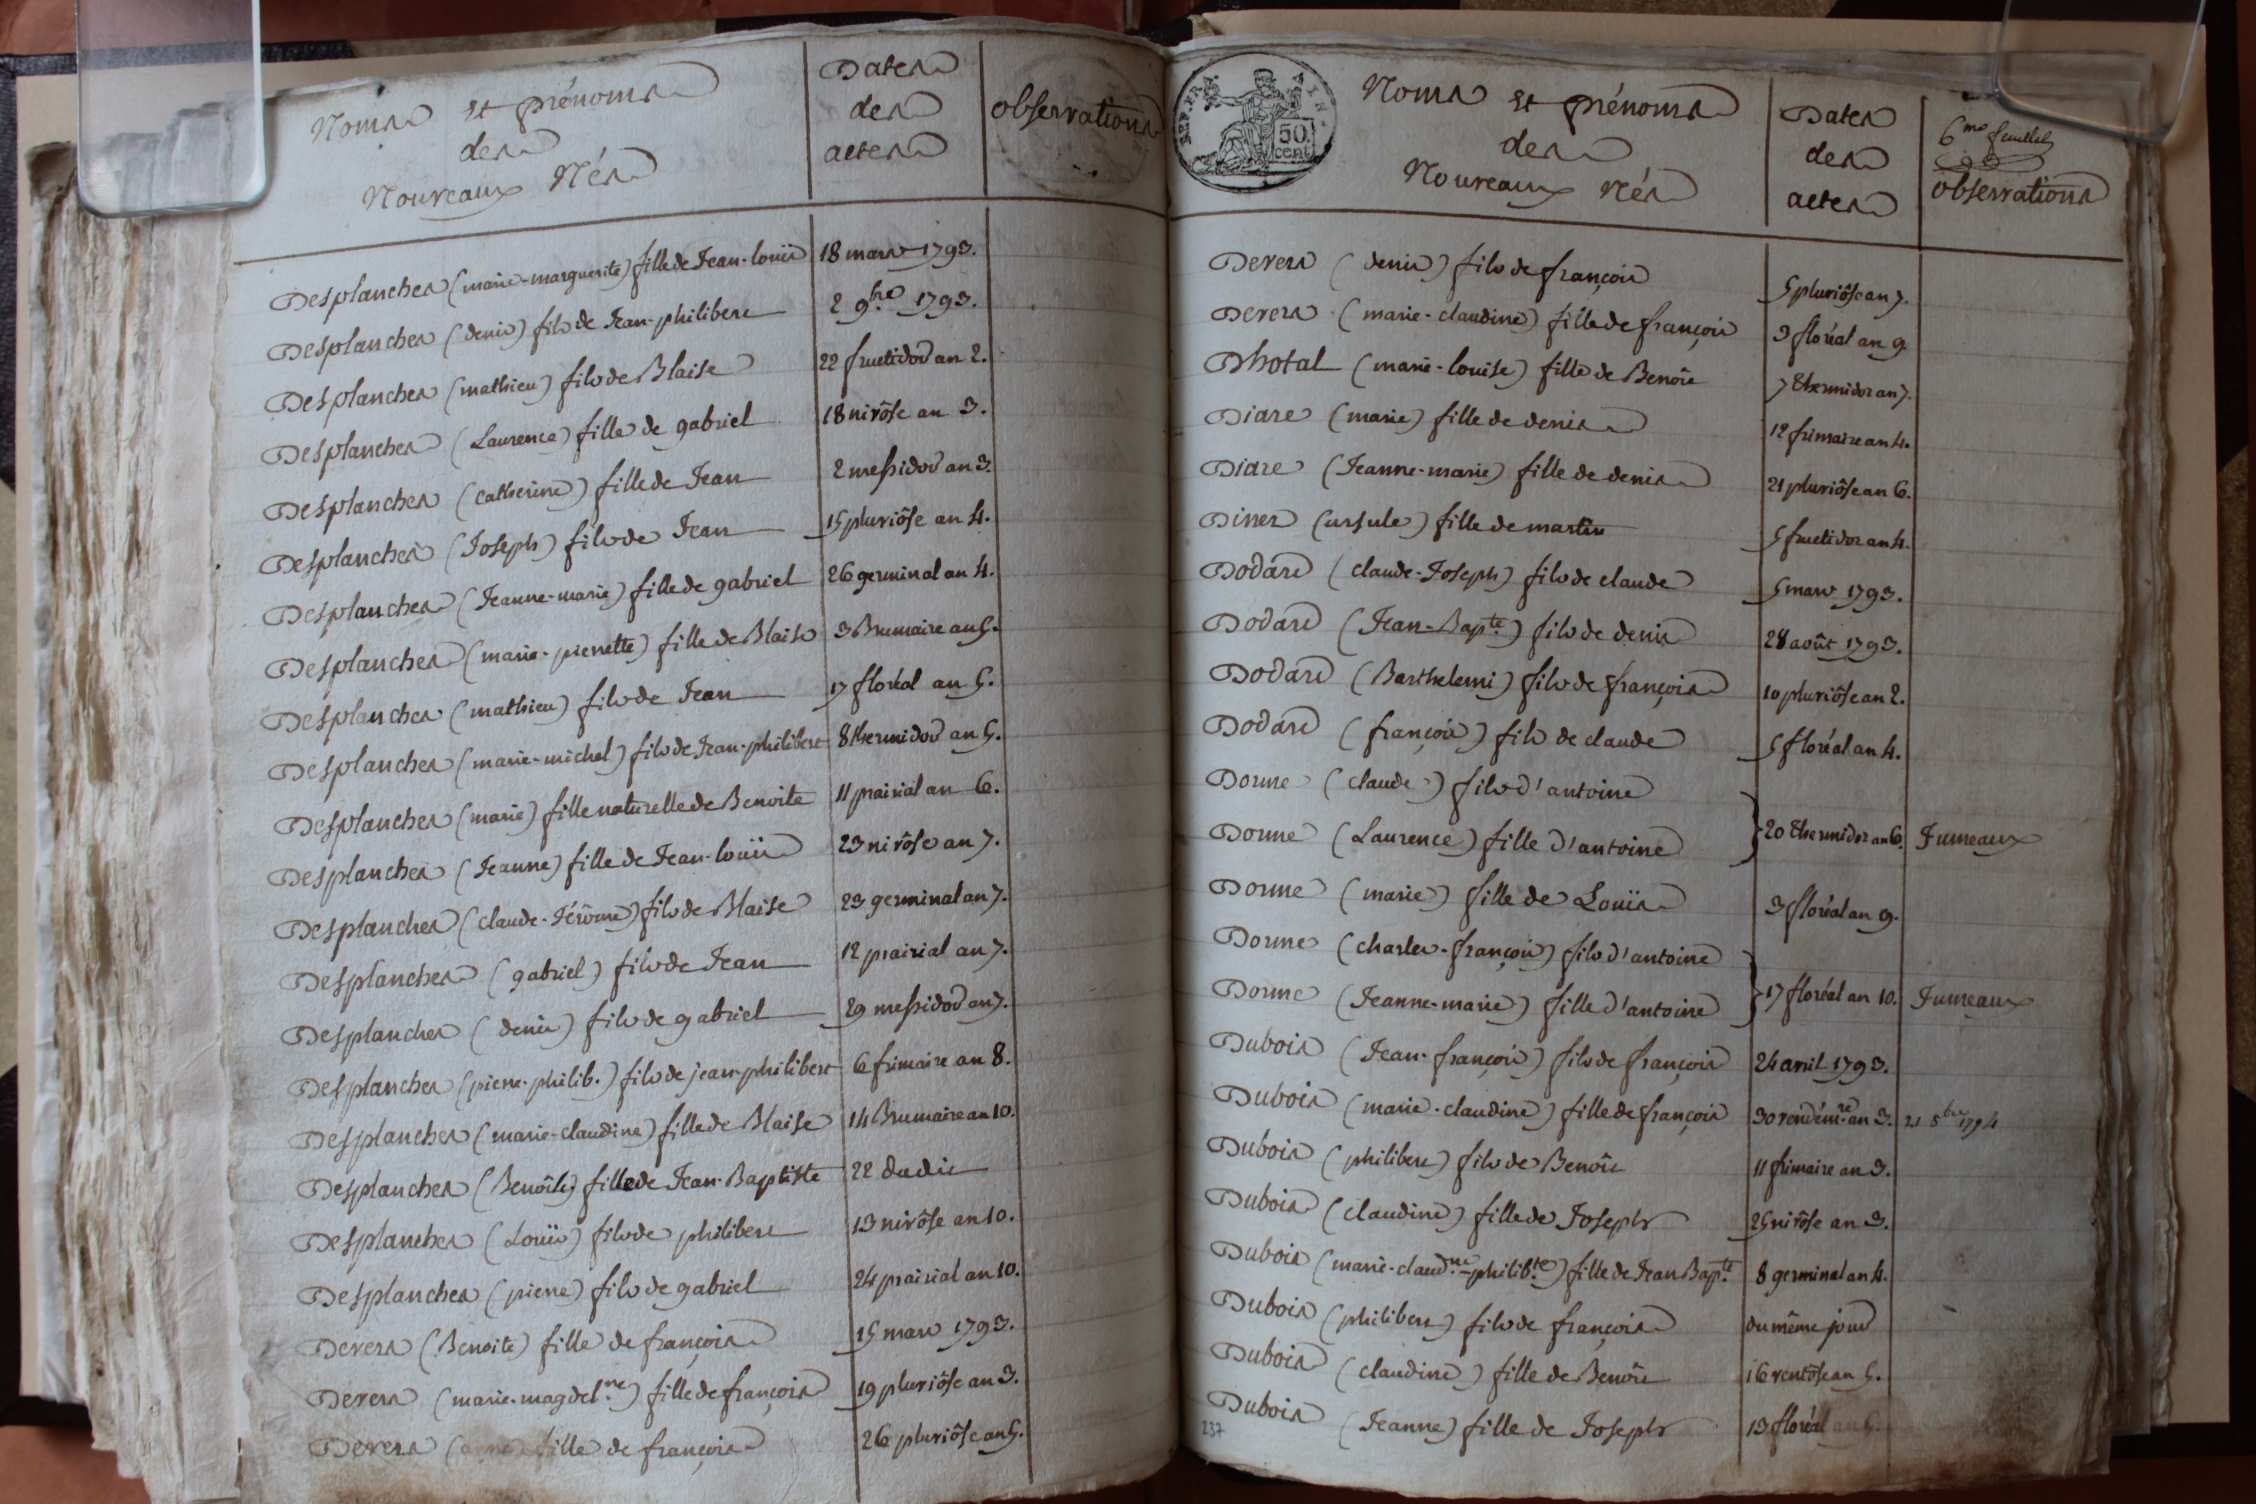 Noms et prénoms
des
Nouveaux Nés
Dates
des
actes
observations
Desplanches (marie-marguerite) fille de Jean-louis 18 mars 1793.
Desplanches (denis) fils de Jean-philibert 2 9.bre 1793.
Desplanches (mathieu) fils de Blaise 22 fructidor an 2.
Desplanches (Laurence) fille de gabriel 18 nivôse an 3.
Desplanches (catherine) fille de Jean 2 messidor an 3.
Desplanches (Joseph) fils de Jean 15 pluviôse an 4.
Desplanches (Jeanne-marie) fille de gabriel 26 germinal an 4.
Desplanches (marie-pierrette) fille de Blaise 3 Brumaire an 5.
Desplanches (mathieu) fils de Jean 17 floréal an 5.
Desplanches (marie-michel) fils de Jean-philibert 8 thermidor an 5.
Desplanches (marie) fille naturelle de Benoite 11 prairial an 6.
Desplanches (Jeanne) fille de Jean-louis 23 nivôse an 7.
Desplanches (claude-Jérôme) fils de Blaise 23 germinal an 7.
Desplanches (gabriel) fils de Jean 12 prairial an 7.
Desplanches (denis) fils de gabriel 29 messidor an 7.
Desplanches (pierre-philib.) fils de jean-philibert 6 frimaire an 8.
Desplanches (marie-claudine) fille de Blaise 14 Brumaire an 10.
Desplanches (Benôite) fille de Jean-Baptiste 22 dudit
Desplanches (Louis) fils de philibert 13 nivôse an 10.
Desplanches (pierre) fils de gabriel 24 prairial an 10.
Devers (Benoite) fille de françois 15 mars 1793.
Devers (marie-magdel.ne) fille de françois 19 pluviôse an 3.
Devers fille de françois 26 pluviôse an 5.
REP. FRA.
50
cent
Noms et prénoms
des
Nouveaux Nés
Dates
des
actes
6.me feuillet
observations
Devers (denis) fils de françois 5 pluviôse an 7.
Devers (marie-claudine) fille de françois 3 floréal an 9.
Dhotal (marie-louise) fille de Benôit 7 thermidor an 7.
Diare (marie) fille de denis 12 frimaire an 4.
Diare (Jeanne-marie) fille de denis 21 pluviôse an 6.
Diner (ursule) fille de martin 5 fructidor an 4.
Dodard (claude-Joseph) fils de claude 5 mars 1793.
Dodard (Jean-Bap.te) fils de denis 28 août 1793.
Dodard (Barthelemi) fils de françois 10 pluviôse an 2.
Dodard (françois) fils de claude 5 floréal an 4.
Dorme (claude) fils d'antoine
Dorme (Laurence) fille d'antoine 20 thermidor an 6. Jumeaux
Dorme (marie) fille de Louis 3 floréal an 9.
Dorme (charles-françois) fils d'antoine
Dorme (Jeanne-marie) fille d'antoine 17 floréal an 10. Jumeaux
Dubois (Jean-françois) fils de françois 24 avril 1793.
Dubois (marie-claudine) fille de françois 30 vendém.re an 3. 21 8.bre 1794
Dubois (philibert) fils de Benôit 11 frimaire an 3.
Dubois (claudine) fille de Joseph 25 nivôse an 3.
Dubois (marie-claud.ne-philib.te) fille de Jean Bap.te 8 germinal an 4.
Dubois (philibert) fils de françois du même jour
Dubois (claudine) fille de Benôit 16 ventôse an 5.
Dubois (Jeanne) fille de Joseph 13 floréal an 5.
237